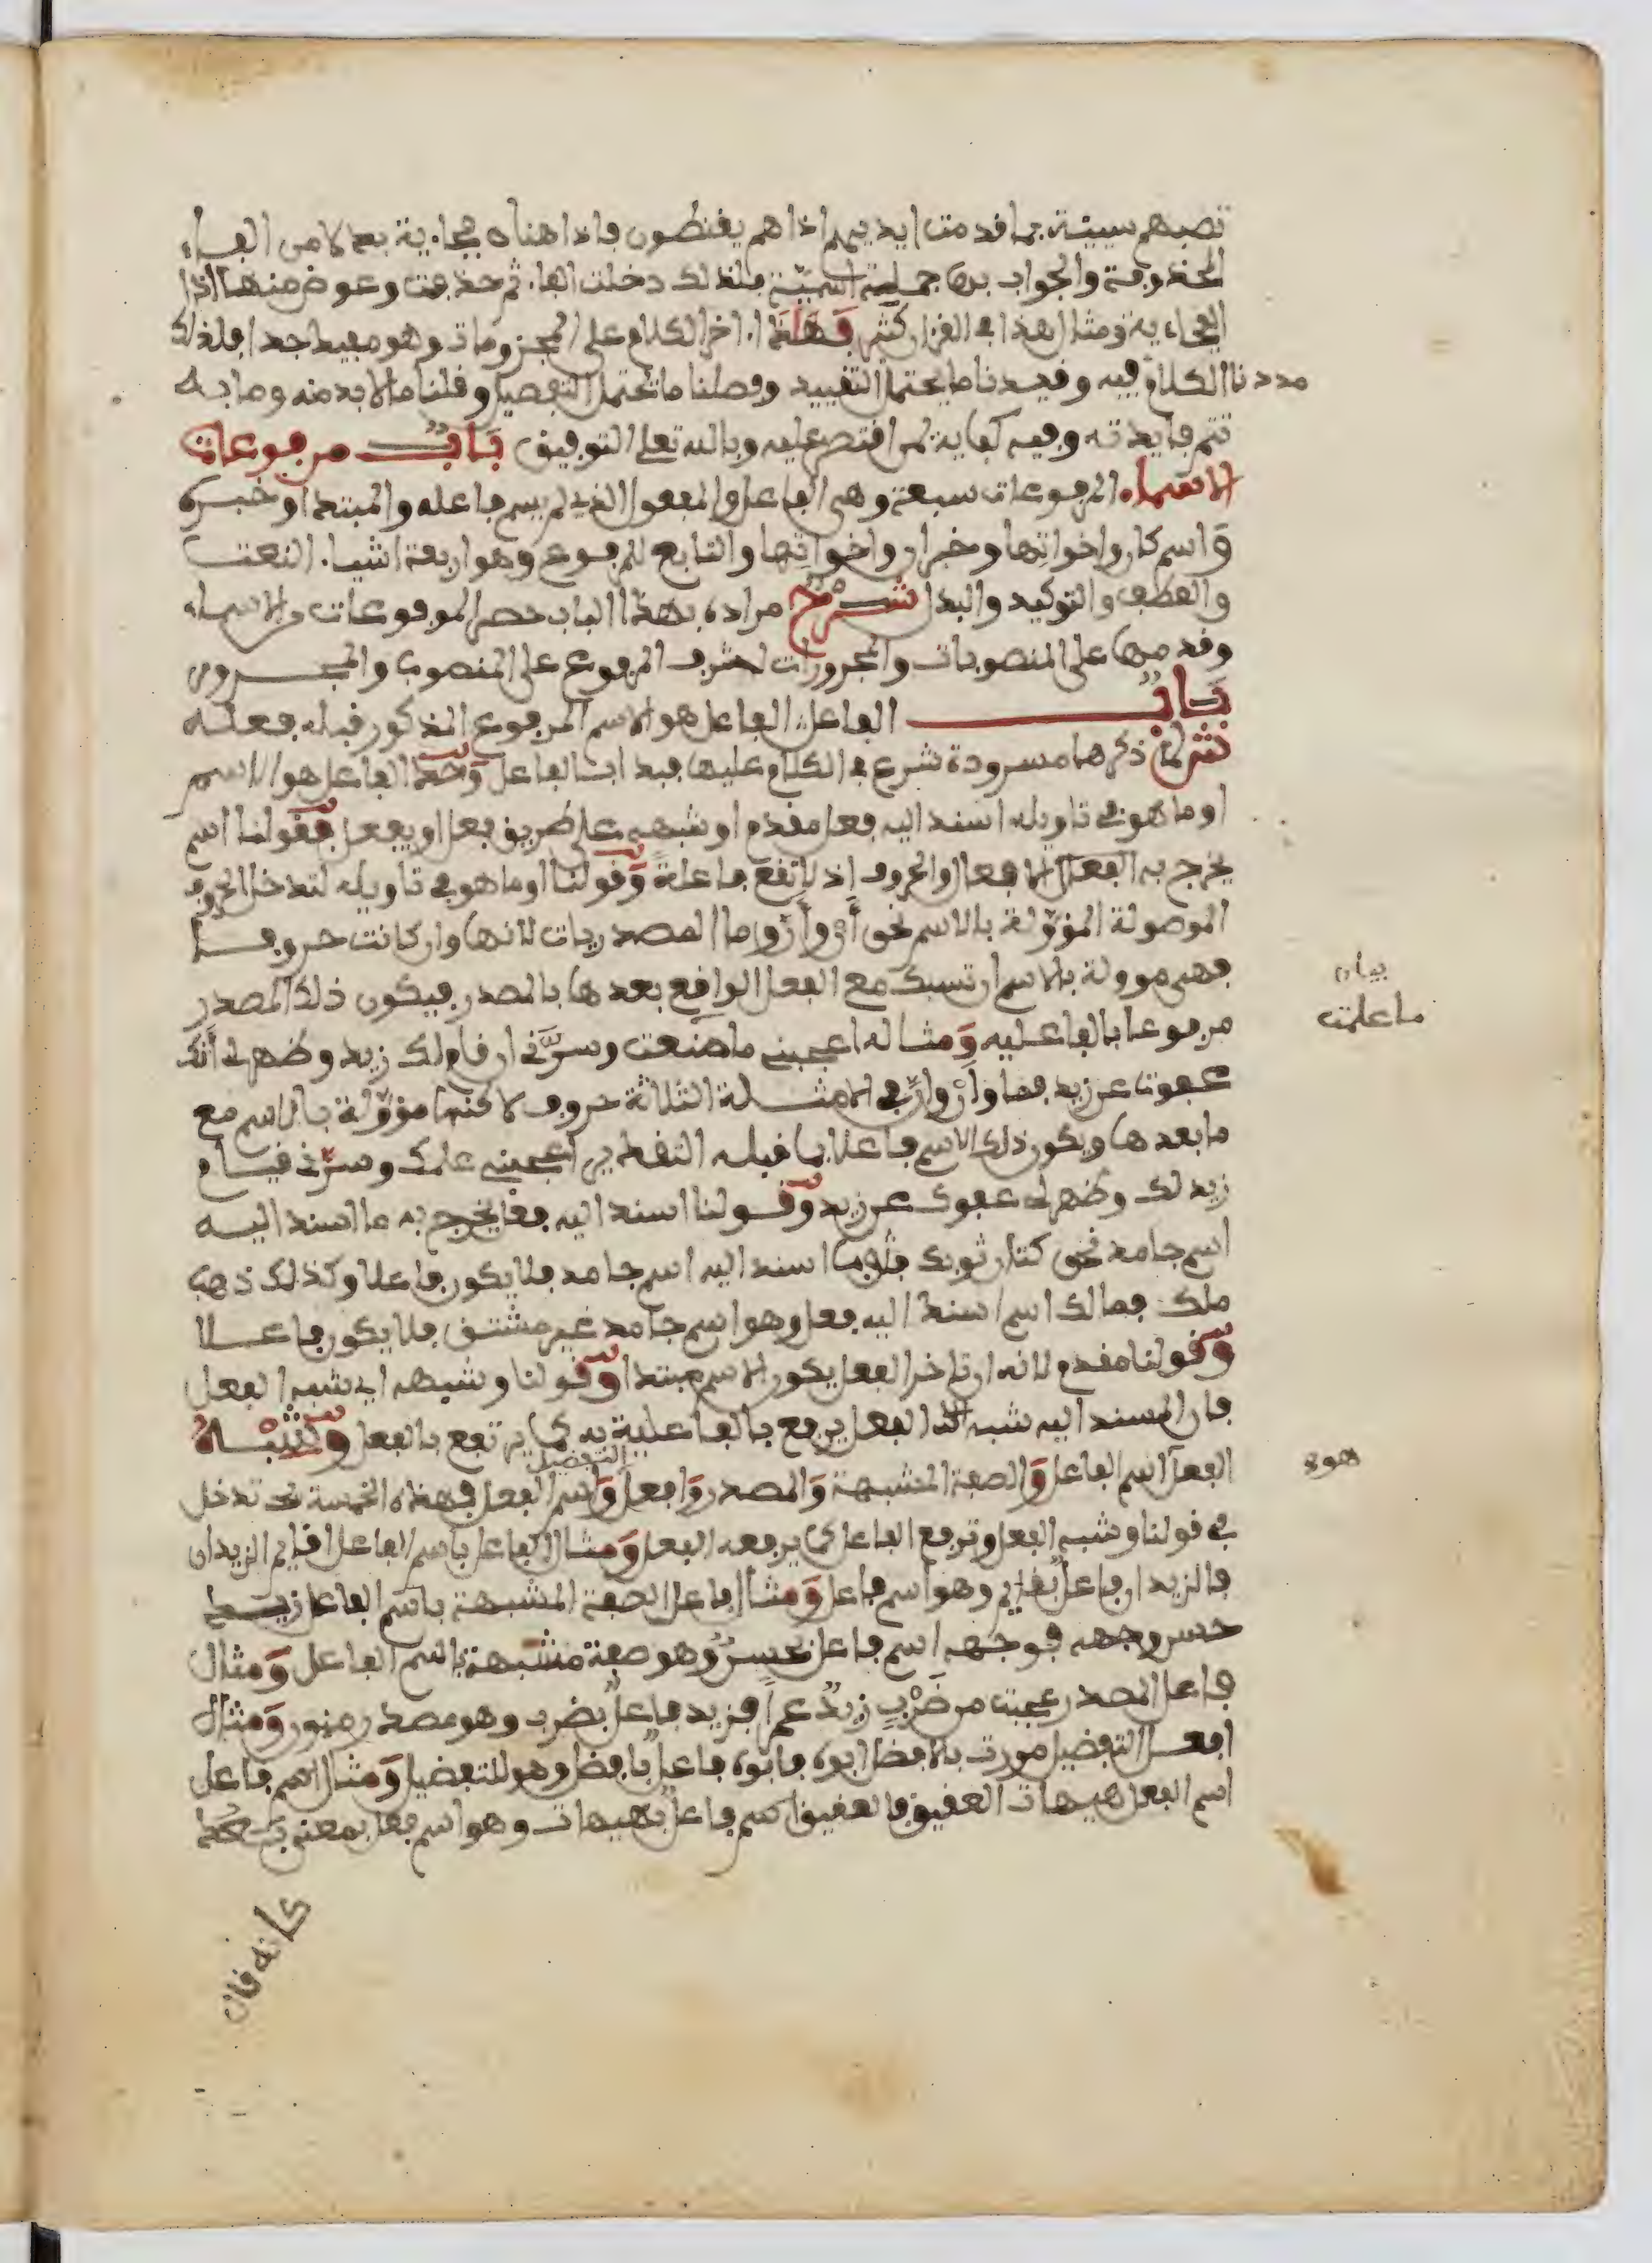 تصبهم سيئة بما قدمت ايديهم اذا هم يقنطون فاذا هناه فجاءية بدلا من الفاء
المحذوفة والجواب بها جملة اسمية فلذلك دخلت الفاء ثم حذفت وعوض منها اذا
الفجاءية ومثل هذا في القرءان كثير فهذا اخر الكلام على المجزومات وهو مفيد جدا فلذلك
مددنا الكلام فيه وقيدنا ما يحتمل التقييد وفصلنا ما تحتمل التفصيل وقلنا ما لا بد منه وما به
تتم فايدته وفيه كفاية لمن اقتصر عليه وبالله تعلى التوفيق باب مرفوعات
الاسماء المرفوعات سبعة وهي الفاعل والمفعول الذي لم يسم فاعله والمبتدا وخبره
واسم كان واخواتها وخبر ان واخواتها والتابع للمرفوع وهو اربعة اشياء النعت
والعطف والتوكيد والبدل شرح مراده بهذا الباب حصر المرفوعات من الاسماء
وقدمها على المنصوبات والمجرورات لشرف المرفوع على المنصوب والمجرور
باب الفاعل الفاعل هو الاسم المرفوع المذكور قبله فعله
ش لما ذكرها مسرودة شرع في الكلام عليها فبدا بالفاعل وحد الفاعل هو الاسم
او ما هو في تاويله اسند اليه فعل مقدم او شبهه على طريق فعل او يفعل فقولنا اسم
يخرج به الافعال والحروف اذ لا تقع فاعلة وقولنا او ما هو في تاويله لتدخل الحروف
الموصولة المؤولة بالاسم نحو أن وأنّ وما المصدريات لانها وان كانت حروفا
فهي موولة بالاسم ان تسبك مع الفعل الواقع بعدها بالمصدر فيكون ذلك المصدر
مرفوعا بالفاعليه ومثاله اعجبني ما صنعت وسرَّني ان قام لك زيد وظهر لي أنك
عفوت عن زيد فما وأنْ وأنّ في الامثلة الثلاثة حروف لاكنها مؤولة بالاسم مع
ما بعدها ويكون ذلك الاسم فاعلا بما قبله التقدير اعجبني علمك وسرّني قيام
زيد لك وظهر لي عفوك عن زيد وقولنا اسند اليه فعل يخرج به ما اسند اليه
اسم جامد نحو كتان ثوبك اسند اليه اسم جامد فلا يكون فاعلا وكذلك ذهب
ملك فمالك اسم اسند اليه فعل وهو اسم جامد غير مشتق فلا يكون فاعلا
وقولنا مقدم لانه ان تاخر الفعل يكون الاسم مبتدا وقولنا وشبهه اي شبه الفعل
فان المسند اليه شبه الفعل يرفع بالفاعلية به كما يرتفع بالفعل وشبه
الفعل اسم الفاعل والصفة المشبهة والمصدر وافعل التفضيل واسم الفعل فهذه الخمسة تدخل
في قولنا وشبه الفعل وترفع الفاعل كما يرفعه الفعل ومثال الفاعل باسم الفاعل اقايم الزيدان
فالزيدان فاعل بقايم وهو اسم فاعل ومثال فاعل الصفة المشبهة باسم الفاعل زيد
حسن وجهه فوجهه اسم فاعل بحسن وهو صفة مشبهة باسم الفاعل ومثال
فاعل المصدر عجبت من ضَرْبٍ زيدٌ عمرا فزيد فاعل بضرب وهو مصدر منون ومثال
افعل التفضيل مررت بالافضل ابوه فابوه فاعل بافضل وهو للتفضيل ومثال اسم فاعل
اسم الفعل هيهات العقيق فالعقيق اسم فاعل بهيهات وهو اسم فعل بمعنى بعد
بيان
ما علمت
هو
كانه قال